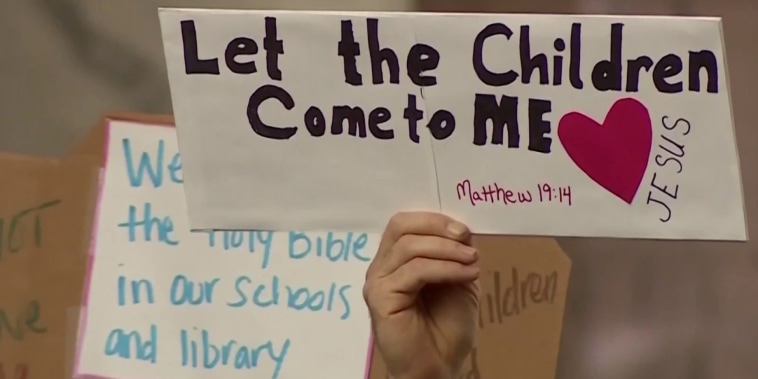 Let the Children
Come to ME
JESUS
Matthew 19:14
We
the Holy Bible
in our schools
and library
ildren